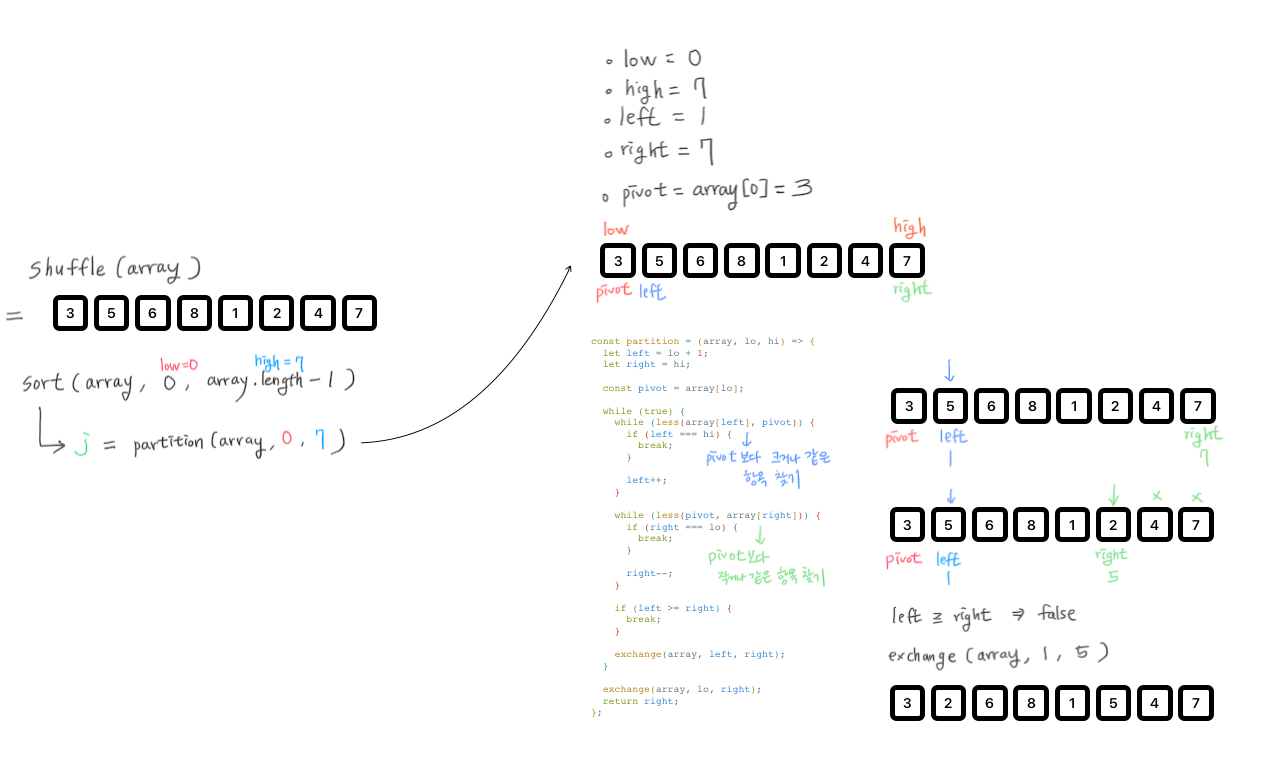 shuffle (array)
=
3 5 6 8 1 2 4 7
low=0 high = 7
sort (array, 0, array.length - 1)
j = partition (array, 0, 7)
• low = 0
• high = 7
• left = 1
• right = 7
• pivot = array[0] = 3
low high
3 5 6 8 1 2 4 7
pivot left right
const partition = (array, lo, hi) => {
let left = lo + 1;
let right = hi;
const pivot = array[lo];
while (true) {
while (less(array[left], pivot)) {
if (left === hi) {
break;
}
pivot보다 크거나 같은
항목 찾기
left++;
}
while (less(pivot, array[right])) {
if (right === lo) {
break;
}
pivot보다
작거나 같은 항목 찾기
right--;
}
if (left >= right) {
break;
}
exchange(array, left, right);
}
exchange(array, lo, right);
return right;
};
↓
3 5 6 8 1 2 4 7
pivot left right
1 7
↓ ↓ × ×
3 5 6 8 1 2 4 7
pivot left right
1 5
left ≥ right ⇒ false
exchange (array, 1, 5)
3 2 6 8 1 5 4 7